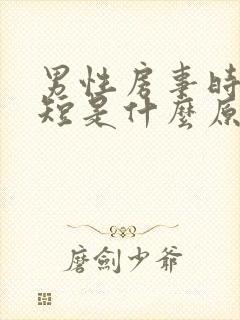 男性房事時
短是什麼原
磨劍少爺